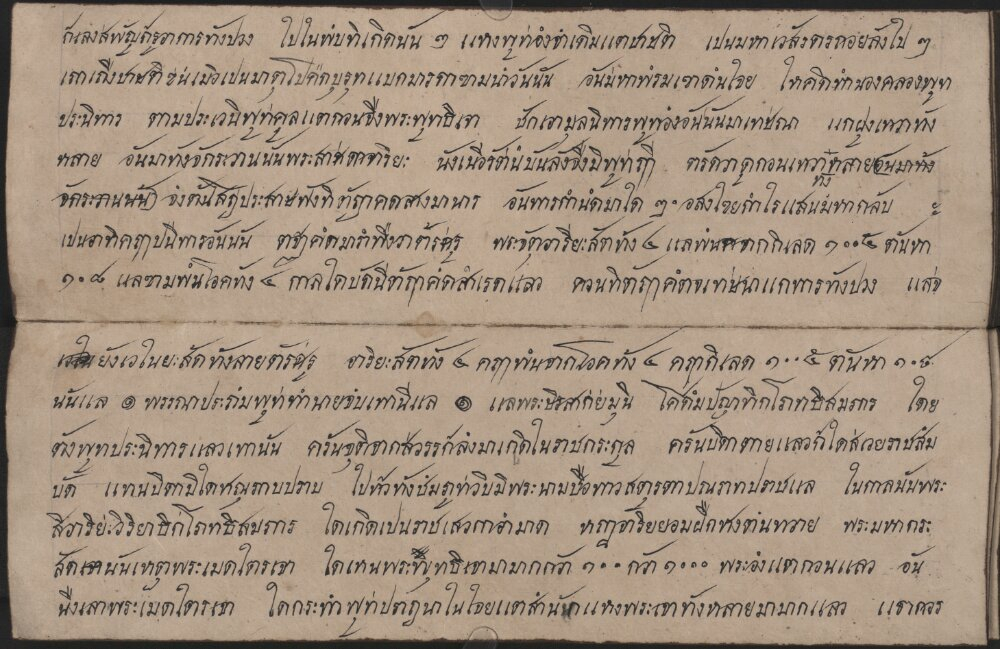 กัแลงสพัญตัรูอาการทังปวง ไปในพับทิเกีดนัน ๆ แหางพุทอํงจำเดีมแตชาชติ เปนมหาเวสังตรถอยลังไป ๆ
เถาเถีงชาษติ เมิอเปนมาตุโปสักบุรุทแบกมารดาขามนำวันนัน อันมหาพํรมเขาดํนใจย ใหคดิทำนองคลองพุท
ประนิทาร ตามประเวนีพุทํคุลแตกอนจืงพระพุทธิเจา ชักเอามุลนิทารพุทอํงอันนันมาเทษณา แกฝูงเทวาทัง
หลาย อันมาทังจักระวานนันพระสาริยะ นังเนีอรัตนํบันลังจืงมิพุทฎี ตรัดวาดูกอนเทวาทังหลาย
จักระวานนนั จํงตังโสฎประสาษฟังทิตัฎาคดสางมานาร อันทารกำนํดมาใด ๒๐ อสํงไขยกำไรแสนมหากลับ
เปนอาทิคฎาปนิทารอันนัน ตฎาคํตมารำพืงวาตัรฺสรู พระจัตุอาริยะสัต ทัง ๔ แลพํนจากกิเลด ๑๐๐๕ ตันหา
๑๐๘ แลขามพํนโอคทัง ๔ กาลใดบัดนีตัฎาคํดสำเรดแลว ควนทิตัฎาคํตจเทษนาแกทารทังปวง แลํจ
ยังเวไนยะสัดทังลายตัรัสรู อาริยะสัต ทัง ๔ คฎาพํนจากโอคทัง ๔ คฎากิเลด ๑๐๐๕ ตันหา ๑๐๘
นันแล ๏ พรรณาประถํมพุทํทำนายจํบเทานีแล ๏ แลพระษิรสากํยมุนี โคํตํมปัญาทิกโภทธิสมภาร ใดย
ตังพุทประนิทารแลวเทานัน ครันจุติจากสวรรคํลังมาเกีดในราชกระกูล ครันบิดาตายแลวกใดสเวยราชสํม
บัด แทนบิดามิใดชณราบปราบ ไปทัวทังชํมภูทวิบมีพระนามชือทาวสตุรตาปณราทปราชแล ในกาลนันพระ
สีอาริย่ะวิริยาธิกโภทธิสมภาร ใดเกีดเปนราชเสวกาอำมาด หฎาอาริยยอมฝึกชางตํนทวาย พระมหากระ
สัดนันเหตุพระเมดไตรเจา ใดเหนพระพุทธิเจามามากกวา ๑๐๐ กวา ๑๐๐๐ พระอํงแตกอนแลว อัน
นืงเลาพระเมดไตรเจา ใดกระทำพุทํปราถฺนาในใจยแตสำนักแหางพระเจาทังหลายมามากแลว แตาควร